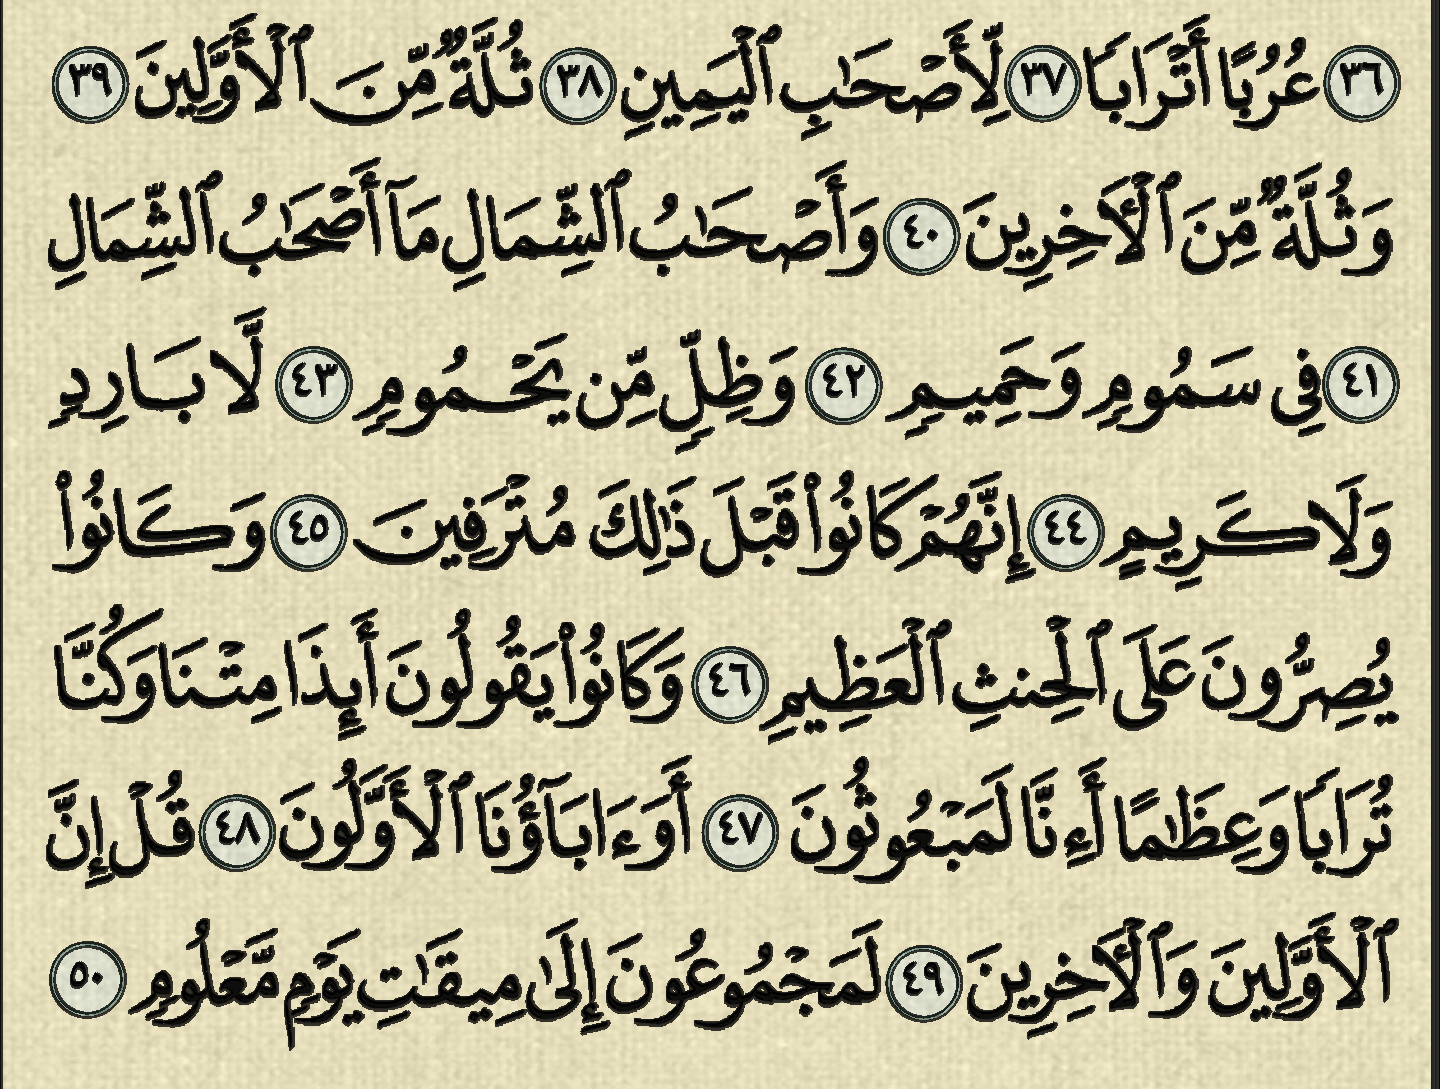 ٣٦ عُرُبًا أَتْرَابًا ٣٧ لِّأَصْحَٰبِ ٱلْيَمِينِ ٣٨ ثُلَّةٌ مِّنَ ٱلْأَوَّلِينَ ٣٩
وَثُلَّةٌ مِّنَ ٱلْأَخِرِينَ ٤٠ وَأَصْحَٰبُ ٱلشِّمَالِ مَآ أَصْحَٰبُ ٱلشِّمَالِ
٤١ فِى سَمُومٍ وَحَمِيمٍ ٤٢ وَظِلٍّ مِّن يَحْمُومٍ ٤٣ لَّا بَارِدٍ
وَلَا كَرِيمٍ ٤٤ إِنَّهُمْ كَانُوا۟ قَبْلَ ذَٰلِكَ مُتْرَفِينَ ٤٥ وَكَانُوا۟
يُصِرُّونَ عَلَى ٱلْحِنثِ ٱلْعَظِيمِ ٤٦ وَكَانُوا۟ يَقُولُونَ أَئِذَا مِتْنَا وَكُنَّا
تُرَابًا وَعِظَٰمًا أَءِنَّا لَمَبْعُوثُونَ ٤٧ أَوَءَابَآؤُنَا ٱلْأَوَّلُونَ ٤٨ قُلْ إِنَّ
ٱلْأَوَّلِينَ وَٱلْأَخِرِينَ ٤٩ لَمَجْمُوعُونَ إِلَىٰ مِيقَٰتِ يَوْمٍ مَّعْلُومٍ ٥٠